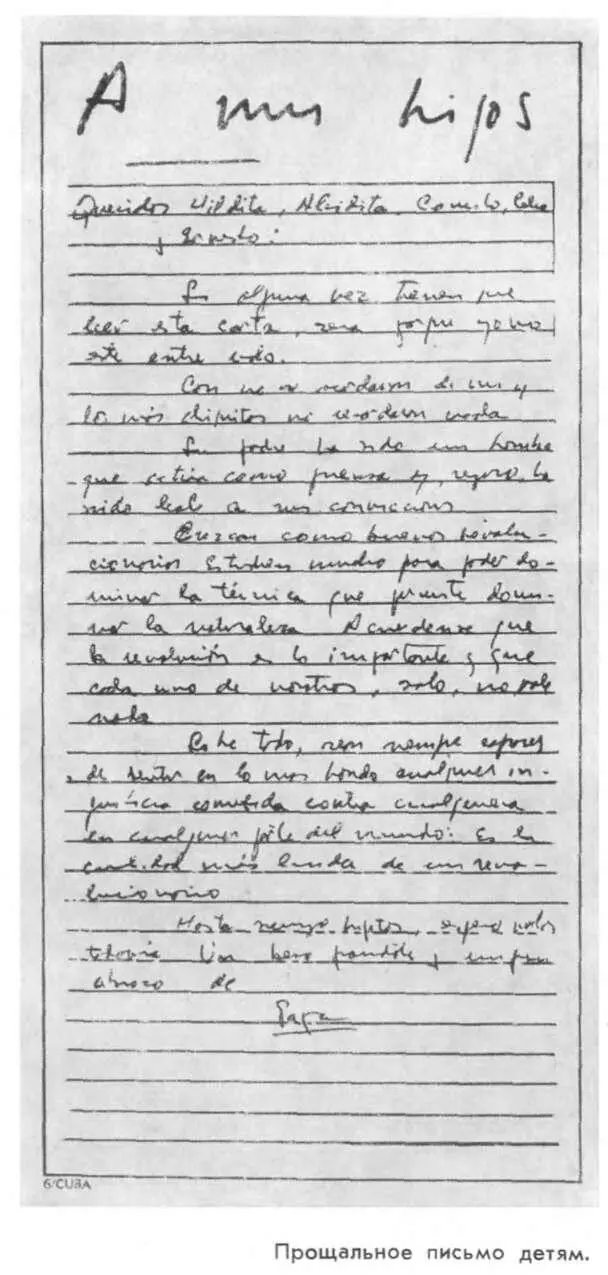 A mis hijos
Queridos Hildita, Aleidita, Camilo, Celia
y Ernesto:
Si alguna vez tienen que
leer esta carta, será porque yo no
esté entre Uds.
Casi no se acordarán de mi y
los más chiquitos no recordarán nada
Su padre ha sido un hombre
que actúa como piensa y, seguro, ha
sido leal a sus convicciones
Crezcan como buenos revolu-
cionarios. Estudien mucho para poder do-
minar la técnica que permite domi-
nar la naturaleza. Acuérdense que
la revolución es lo importante y que
cada uno de nosotros, solo, no vale
nada
Sobre todo, sean siempre capaces
de sentir en lo más hondo cualquier in-
justicia cometida contra cualquiera
en cualquier parte del mundo. Es la
cualidad más linda de un revo-
lucionario
Hasta siempre hijitos, espero verlos
todavía Un beso grandote y un gran
abrazo de
Papá
6/CUBA
Прощальное письмо детям.